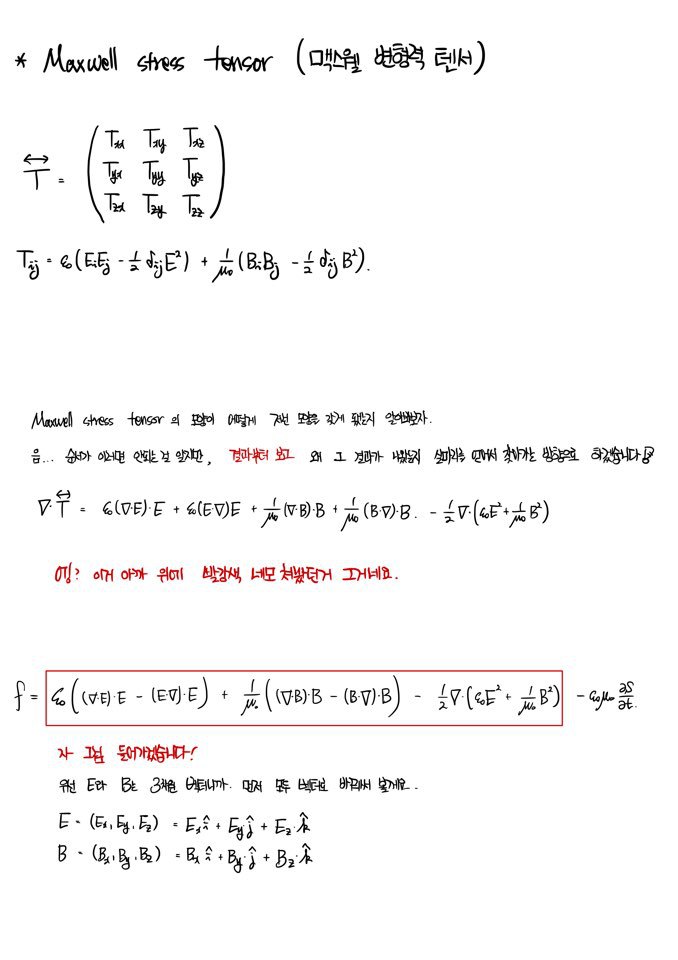 * Maxwell stress tensor (맥스웰 변형력 텐서)
↔T = ( Txx Txy Txz
Tyx Tyy Tyz
Tzx Tzy Tzz )
Tij = ε₀(EiEj - 1/2 δij E²) + 1/μ₀ (BiBj - 1/2 δij B²).
Maxwell stress tensor의 모양이 어떻게 저런 모양을 갖게 됐는지 알아보자.
음... 순서가 이러면 안되는 것 같지만, 결과부터 보고 왜 그 결과가 나왔는지 실마리를 면서 찾아가는 방향으로 하겠습니다
∇·↔T = ε₀(∇·E)·E + ε₀(E·∇)E + 1/μ₀ (∇·B)·B + 1/μ₀ (B·∇)·B. - 1/2 ∇·(ε₀E² + 1/μ₀ B²)
어잉? 이거 아까 위에 빨강색 네모 쳐놨던거 그거네요.
f = ε₀((∇·E)·E - (E·∇)·E) + 1/μ₀ ((∇·B)·B - (B·∇)·B) - 1/2 ∇·(ε₀E² + 1/μ₀ B²) - ε₀μ₀ ∂S/∂t.
자 그럼 들어가겠습니다!
우선 E와 B는 3차원 벡터니까. 먼저 모두 벡터로 바꿔서 볼게요.
E = (Ex, Ey, Ez) = Ex î + Ey·ĵ + Ez·k̂
B = (Bx, By, Bz) = Bx î + By·ĵ + Bz·k̂